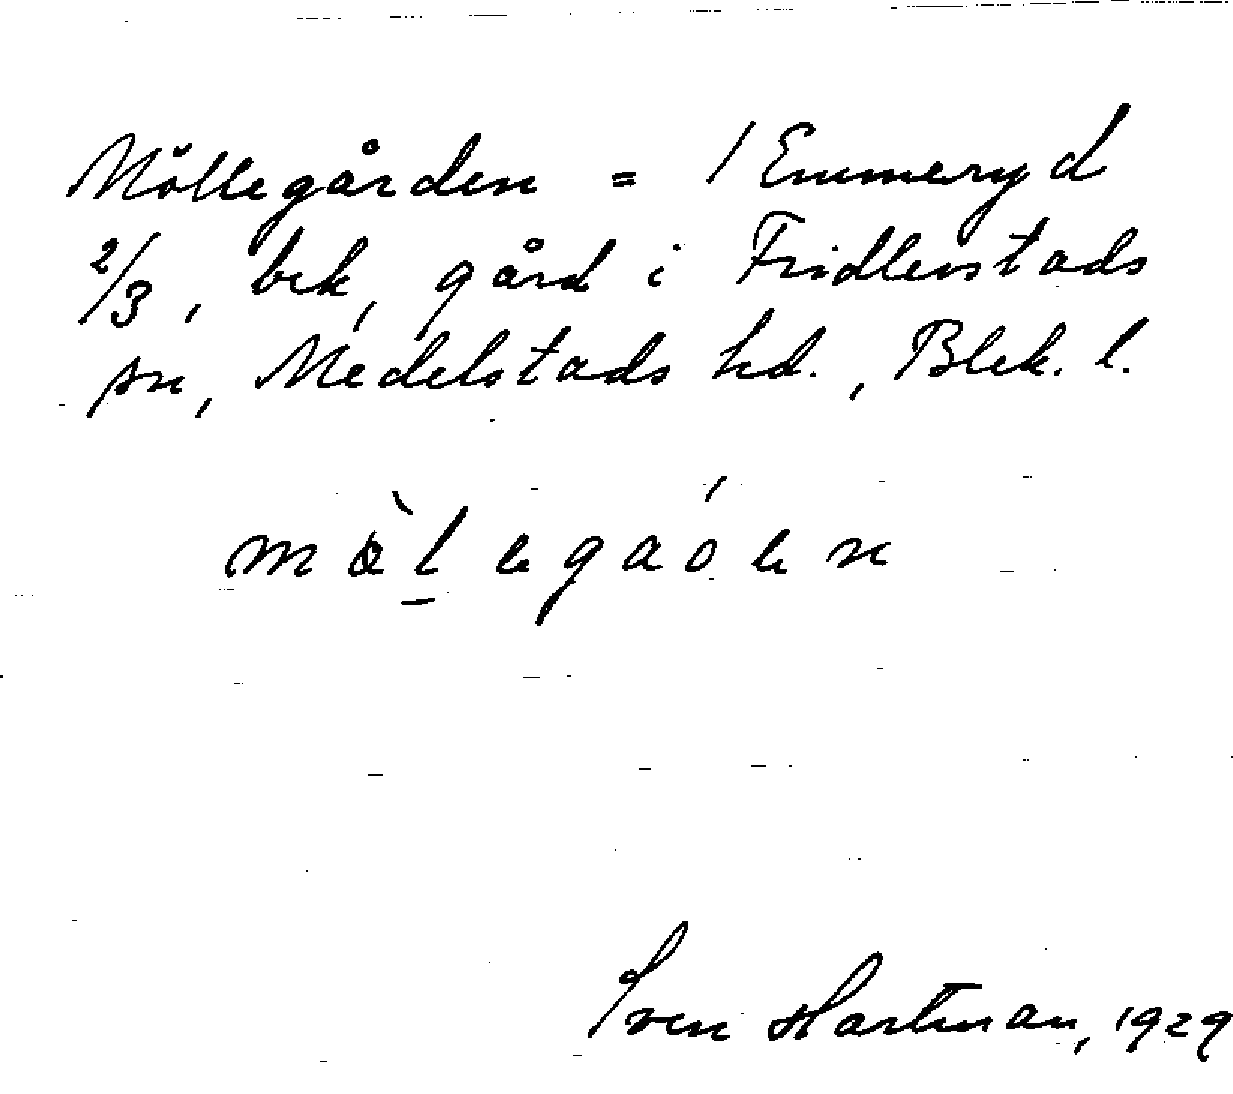 Möllegården = / Emmeryd
2/3, bek, gård i Fridlevstads
sn, Medelstads hd., Blek. l.
Sven Hartman, 1929